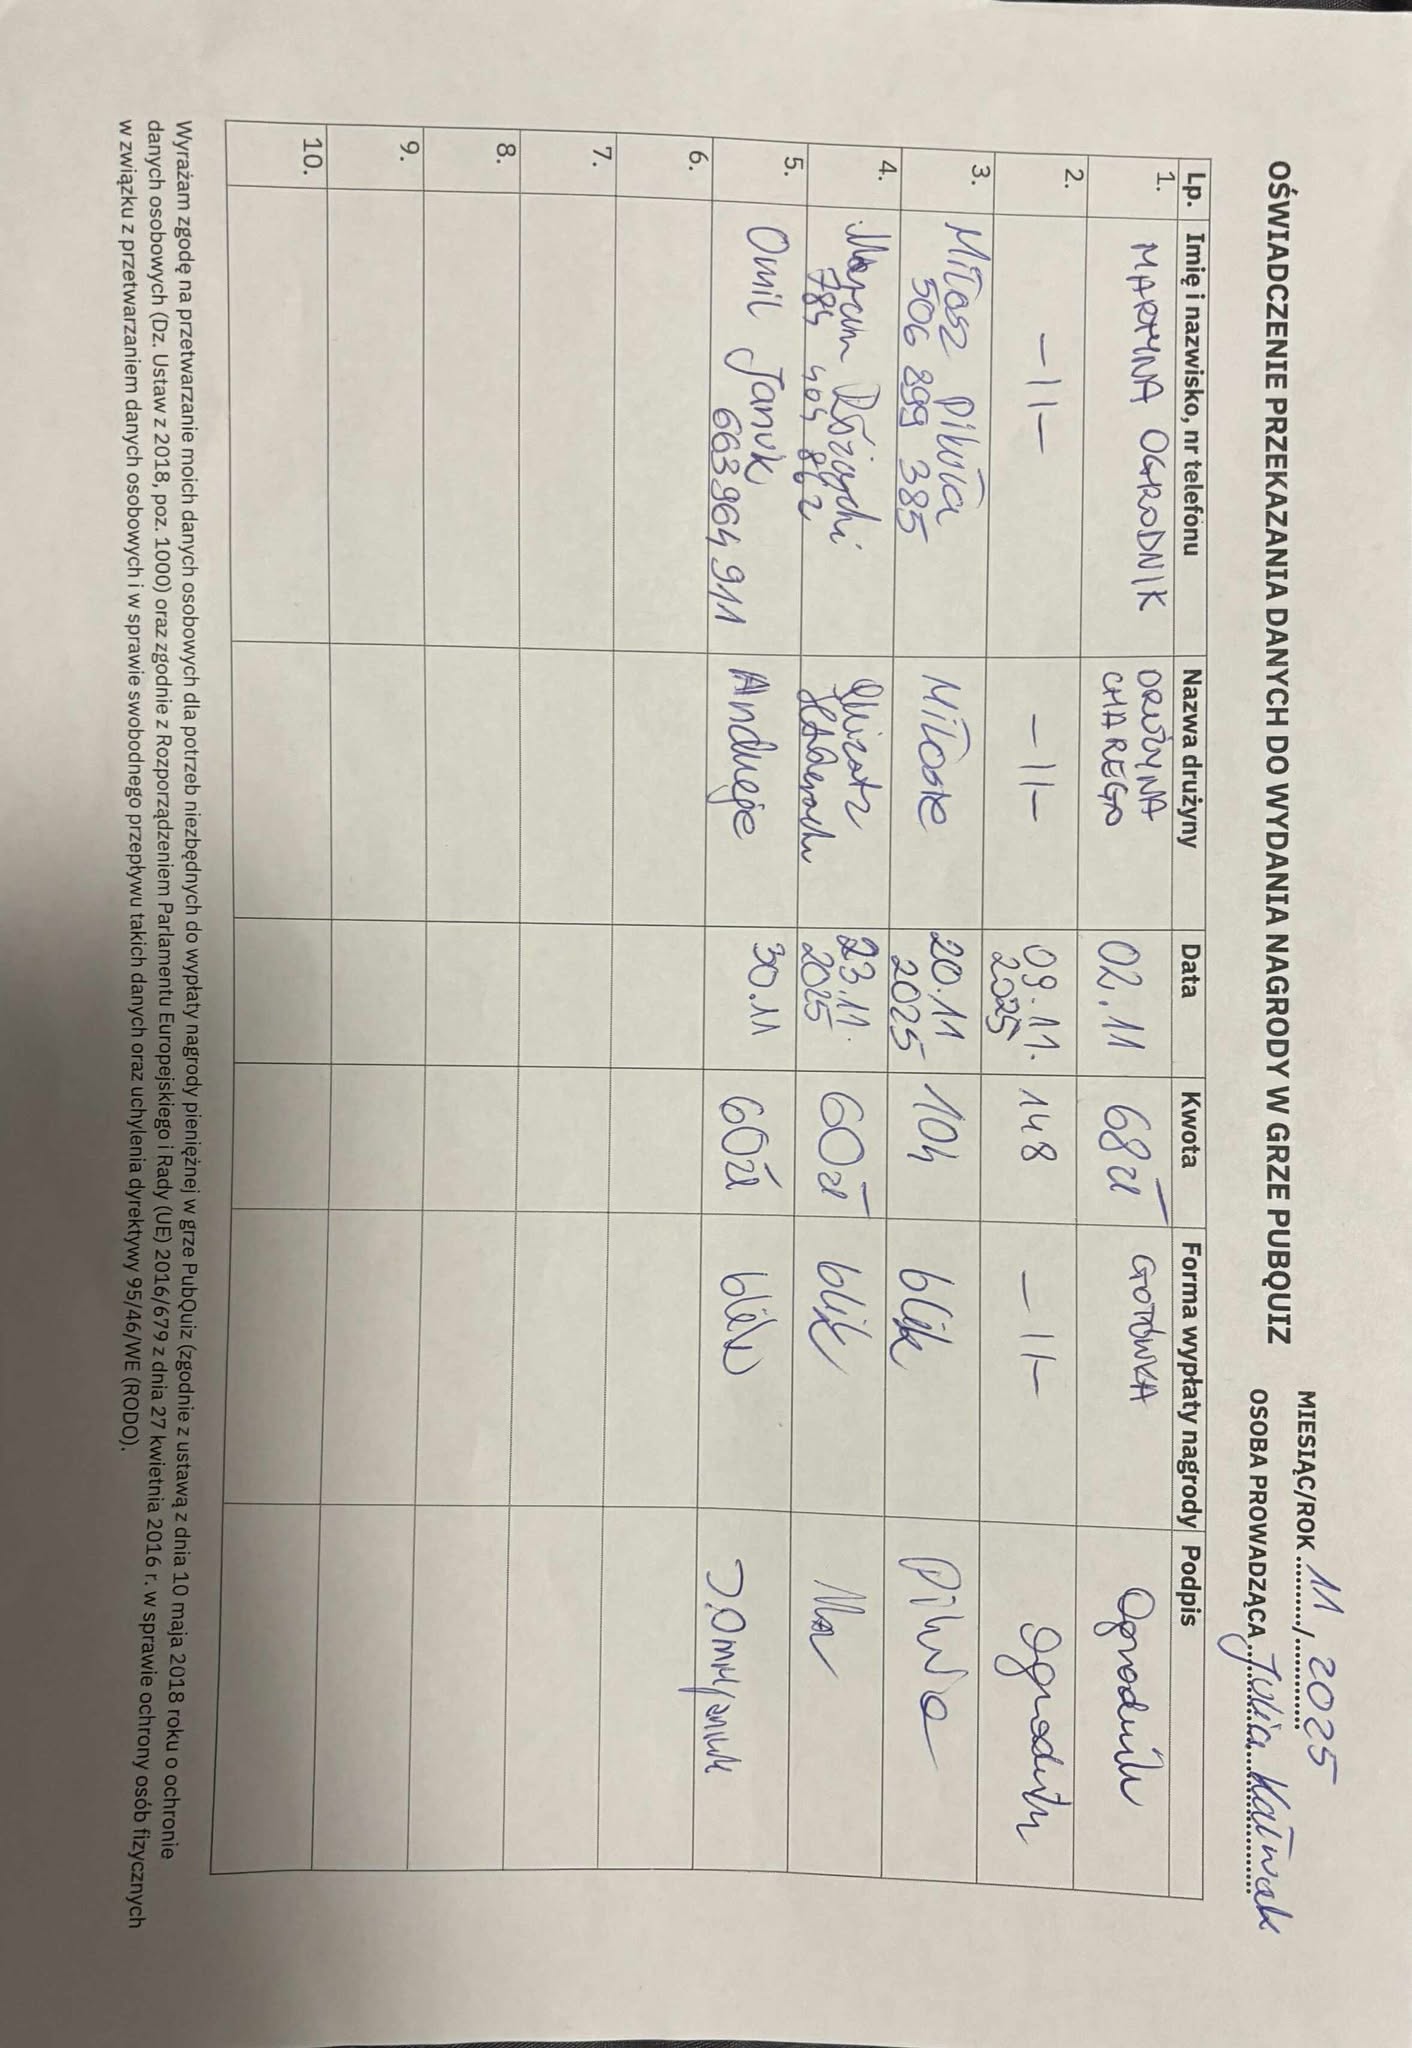 OŚWIADCZENIE PRZEKAZANIA DANYCH DO WYDANIA NAGRODY W GRZE PUBQUIZ
MIESIĄC/ROK 11 / 2025
OSOBA PROWADZĄCA Julia Kałwak
Lp. Imię i nazwisko, nr telefonu Nazwa drużyny Data Kwota Forma wypłaty nagrody Podpis
1. MARTYNA OGRODNIK DRUŻYNA CHAREGO 02.11 68 zł GOTÓWKA Ogrodnik
2. -||- -||- 09.11. 2025 148 -||- Ogrodnik
3. Miłosz Pikuła Miłosie 20.11 104 blik
506 899 385 2025
4. 23.11. 60 zł blik
784 404 862 2025
5. Omil Januk 30.11 60 zł blik
663 964 911
6.
7.
8.
9.
10.
Wyrażam zgodę na przetwarzanie moich danych osobowych dla potrzeb niezbędnych do wypłaty nagrody pieniężnej w grze PubQuiz (zgodnie z ustawą z dnia 10 maja 2018 roku o ochronie
danych osobowych (Dz. Ustaw z 2018, poz. 1000) oraz zgodnie z Rozporządzeniem Parlamentu Europejskiego i Rady (UE) 2016/679 z dnia 27 kwietnia 2016 r. w sprawie ochrony osób fizycznych
w związku z przetwarzaniem danych osobowych i w sprawie swobodnego przepływu takich danych oraz uchylenia dyrektywy 95/46/WE (RODO).